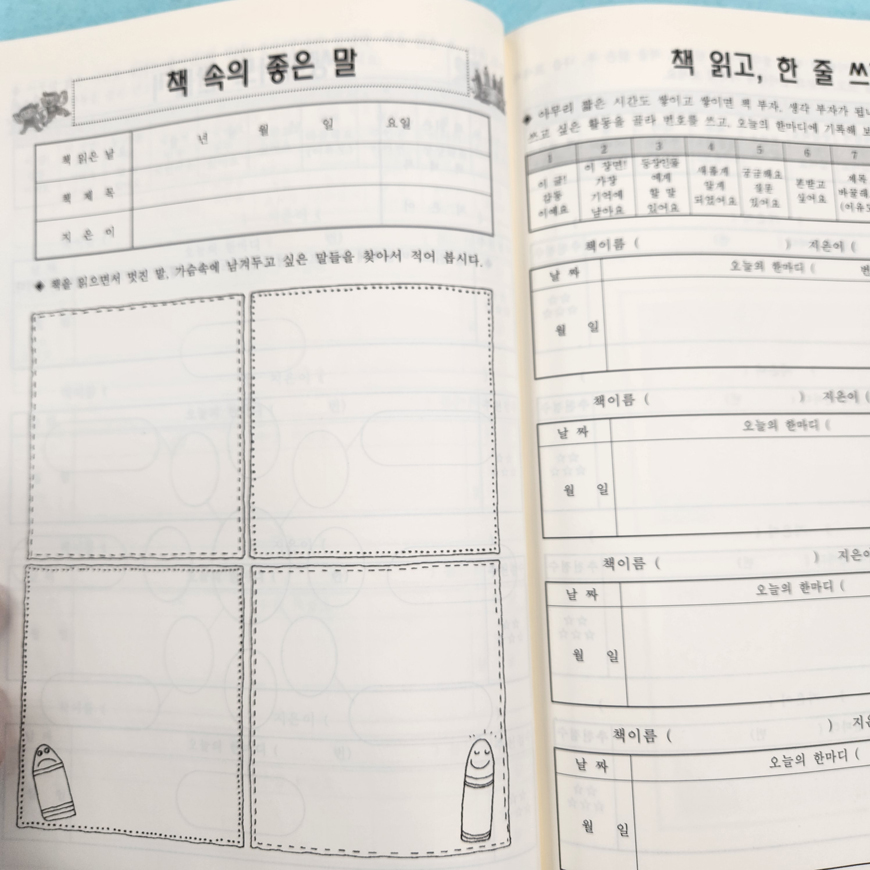 책 속의 좋은 말
책 읽은 날 년 월 일 요일
책 제 목
지 은 이
◈ 책을 읽으면서 멋진 말, 가슴속에 남겨두고 싶은 말들을 찾아서 적어 봅시다.
책 읽고, 한 줄 쓰
◈ 아무리 짧은 시간도 쌓이고 쌓이면 책 부자, 생각 부자가 됩니
쓰고 싶은 활동을 골라 번호를 쓰고, 오늘의 한마디에 기록해 보
1 2 3 4 5 6 7
이 글!
감동
이에요
이 장면!
가장
기억에
남아요
등장인물
에게
할 말
있어요
새롭게
알게
되었어요
궁금해요
질문
있어요
본받고
싶어요
제목
바꿀래
(이유도
책이름 ( ) 지은이 (
날 짜 오늘의 한마디 ( 번
월 일
책이름 ( ) 지은이 (
날 짜 오늘의 한마디 (
월 일
책이름 ( ) 지은이
날 짜 오늘의 한마디 (
월 일
책이름 ( ) 지은
날 짜 오늘의 한마디 (
월 일